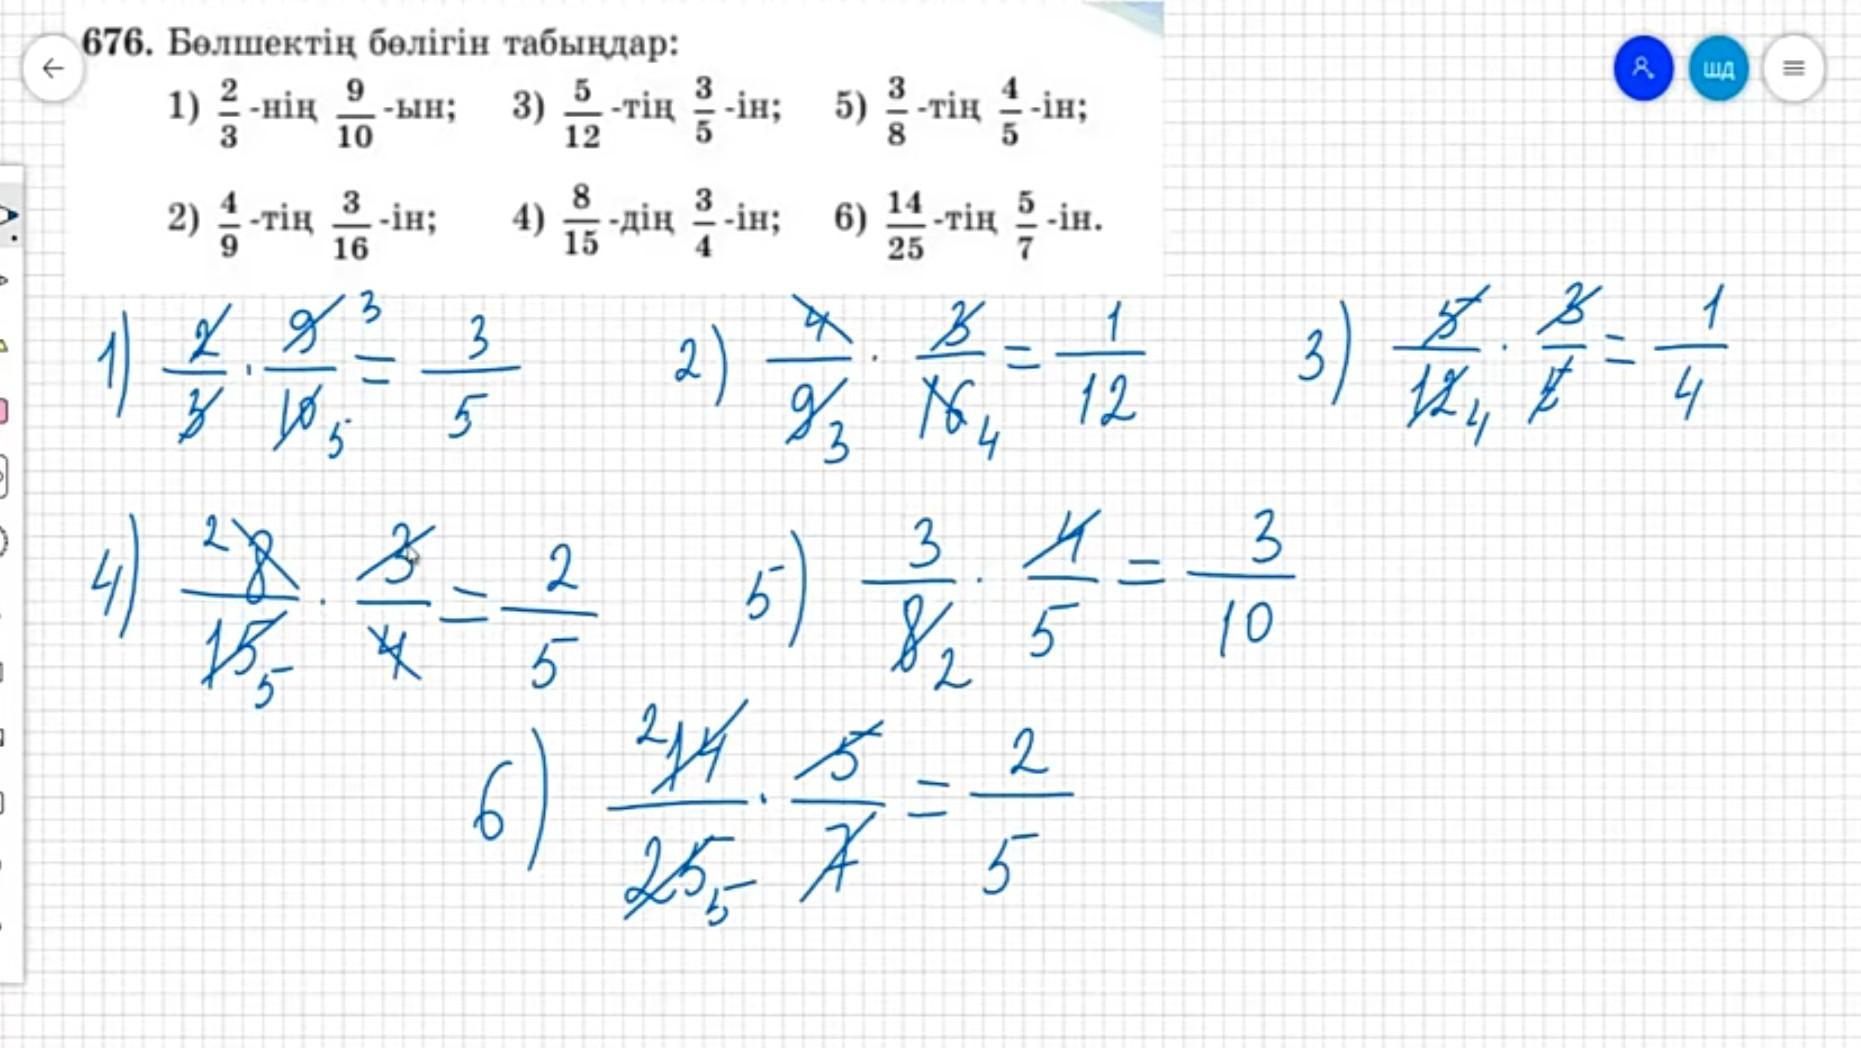 676. Бөлшектің бөлігін табыңдар:
1) 2/3 -нің 9/10 -ын; 3) 5/12 -тің 3/5 -ін; 5) 3/8 -тің 4/5 -ін;
2) 4/9 -тің 3/16 -ін; 4) 8/15 -дің 3/4 -ін; 6) 14/25 -тің 5/7 -ін.
ШД
1) 2/3 · 9 3/10 5 = 3/5 2) 4/9 3 · 3/16 4 = 1/12 3) 5/12 4 · 3/5 = 1/4
4) 2 8/15 5 · 3/4 = 2/5 5) 3/8 2 · 4/5 = 3/10
6) 2 14/25 5 · 5/7 = 2/5